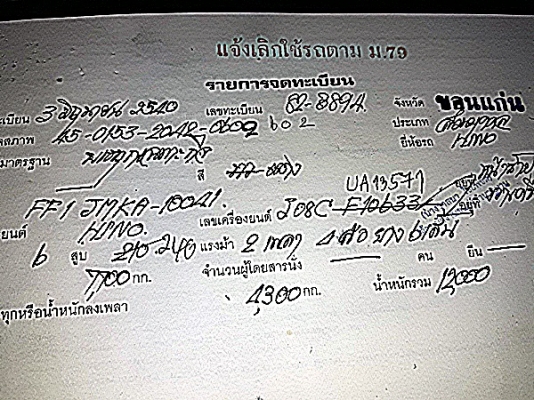 แจ้งเลิกใช้รถตาม ม.79
รายการจดทะเบียน
เบียน 3 มิถุนายน 2540 เลขทะเบียน 82-8894 จังหวัด ขอนแก่น
สภาพ 45-0153-2042-0602 602 ประเภท
มาตรฐาน สี ยี่ห้อรถ HINO
FF1 JMKA-10041 เลขเครื่องยนต์ J08C-F10633 UA13571
ยนต์ HINO.
6 สูบ 210.240 แรงม้า 2 เพลา 4 ล้อ ยาง 6 เส้น
7,700 กก. จำนวนผู้โดยสารนั่ง — คน ยืน —
ทุกหรือน้ำหนักลงเพลา 4,300 กก. น้ำหนักรวม 12,000